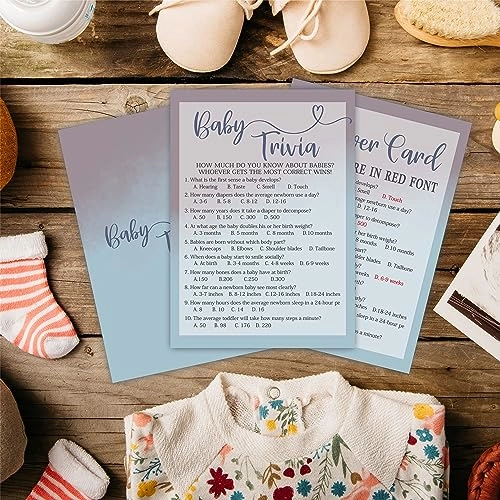 Baby
Trivia
HOW MUCH DO YOU KNOW ABOUT BABIES?
WHOEVER GETS THE MOST CORRECT WINS!
1. What is the first sense a baby develops?
A. Hearing B. Taste C. Smell D. Touch
2. How many diapers does the average newborn use a day?
A. 3-6 B. 5-8 C. 8-12 D. 12-16
3. How many years does it take a diaper to decompose?
A. 50 B. 150 C. 300 D. 500
4. At what age the baby doubles his or her birth weight?
A. 3 months B. 5 months C. 8 months D. 10 months
5. Babies are born without which body part?
A. Kneecaps B. Elbows C. Shoulder blades D. Tailbone
6. When does a baby start to smile socially?
A. At birth B. 3-4 weeks C. 4-8 weeks D. 6-9 weeks
7. How many bones does a baby have at birth?
A.150 B.206 C.250 D.300
8. How far can a newborn baby see most clearly?
A. 3-7 inches B. 8-12 inches C.12-16 inches D.18-24 inches
9. How many hours does the average newborn sleep in a 24-hour pe
A. 8 B. 10 C. 14 D. 16
10. The average toddler will take how many steps a minute?
A. 50 B. 98 C. 176 D. 220
Baby
er Card
RE IN RED FONT
develops?
Smell D. Touch
average newborn use a day?
D. 12-16
a diaper to decompose?
D. 500
his or her birth weight?
months D. 10 months
body part?
blades D. Tailbone
socially?
weeks D. 6-9 weeks
have at birth?
most clearly?
inches D.18-24 inches
newborn sleep in a 24-hour pe
many steps a minute?